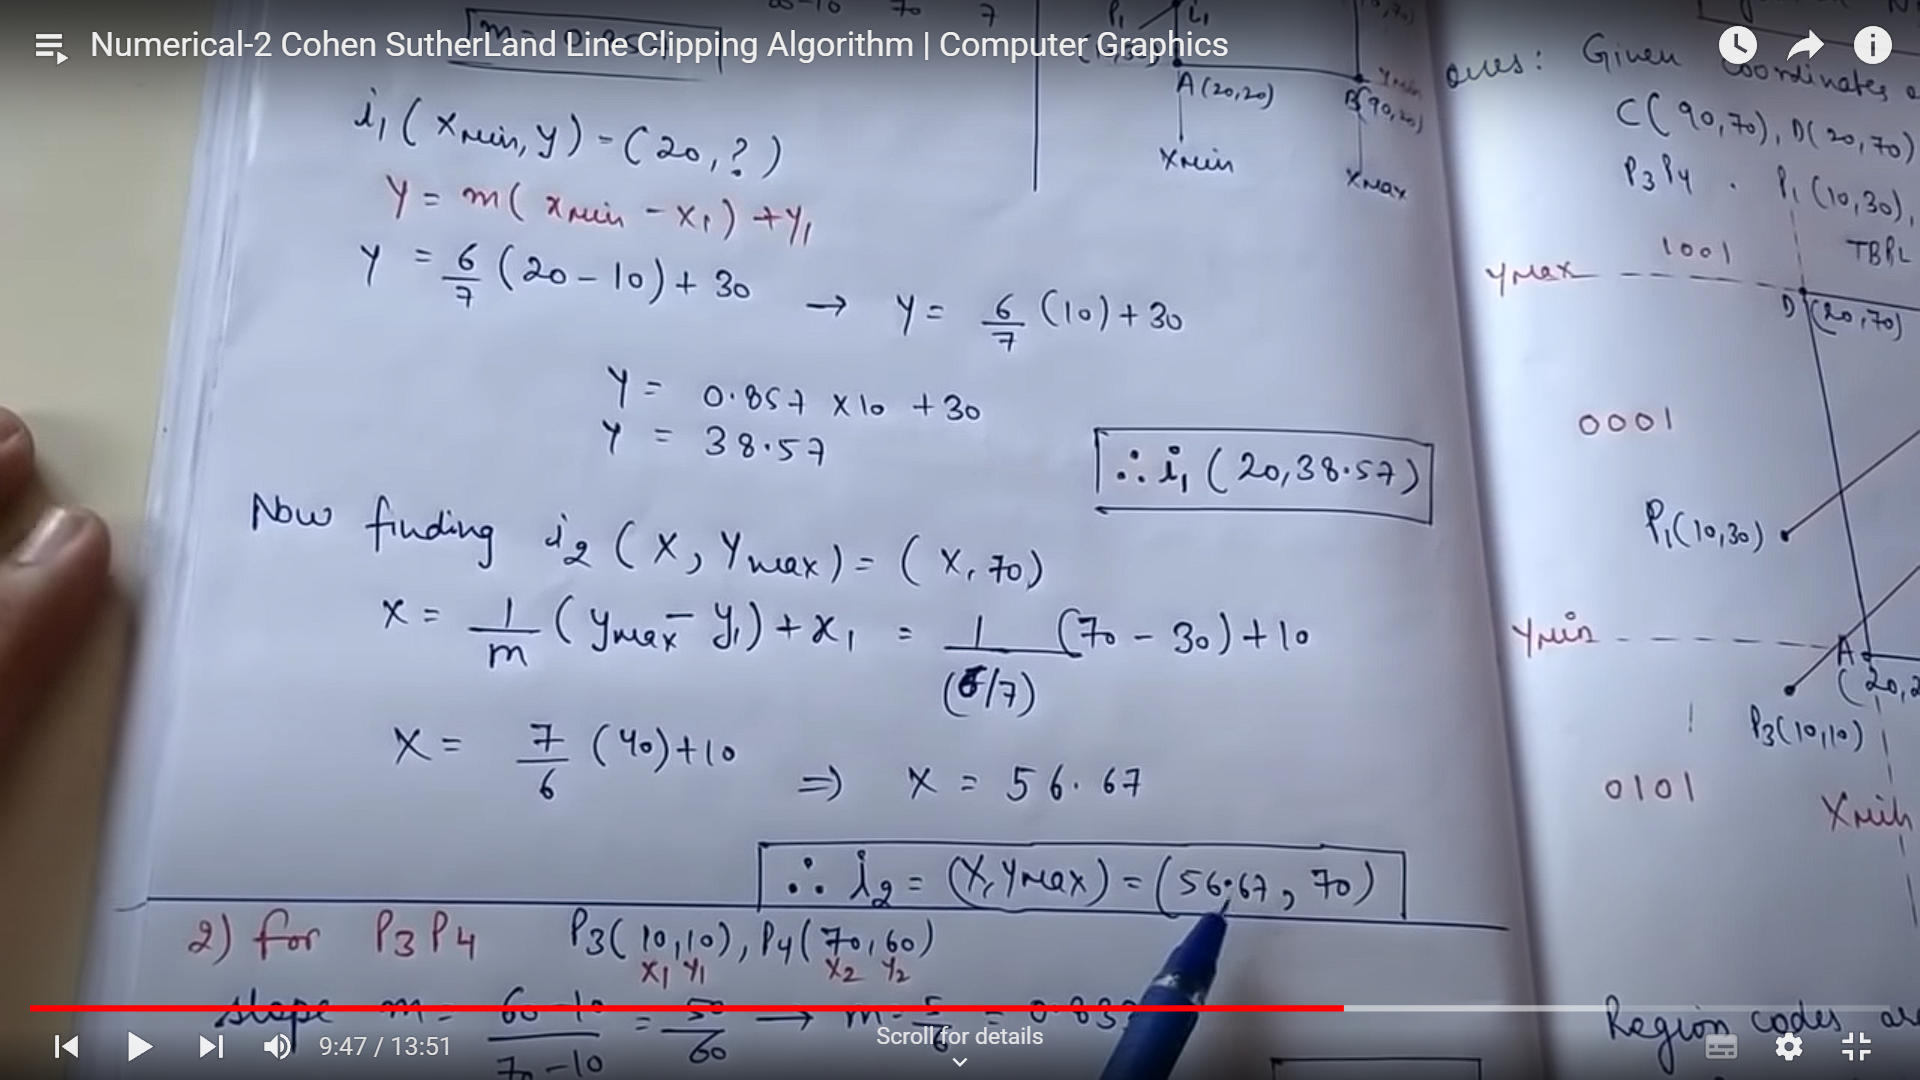 Numerical-2 Cohen SutherLand Line Clipping Algorithm | Computer Graphics
i1 ( xmin, y ) - (20, ?)
Y = m( xmin - x1) + y1
Y = 6/7 (20 - 10) + 30 → Y = 6/7 (10) + 30
Y = 0.857 x 10 + 30
Y = 38.57
∴ i1 (20, 38.57)
Now finding i2 ( X, Ymax) = ( X, 70)
X = 1/m ( ymax - y1) + x1 = 1/(6/7) (70 - 30) + 10
X = 7/6 (40) + 10 ⇒ X = 56.67
∴ i2 = (X, Ymax) = (56.67, 70)
2) for P3P4 P3(10,10), P4(70,60)
x1 y1 x2 y2
slope m = 60-10/70-10 = 50/60 → m = 5/6 = 0.83
A(20,20)
B(90,20)
Ymin
Xmin
Xmax
Ques: Given coordinates
C(90,70), D(20,70)
P3P4 . P1(10,30),
TBRL
1001
Ymax
D(20,70)
0001
P1(10,30)
Ymin
A
(20,2
P3(10,10)
0101
Xmin
Region codes are
9:47 / 13:51
Scroll for details